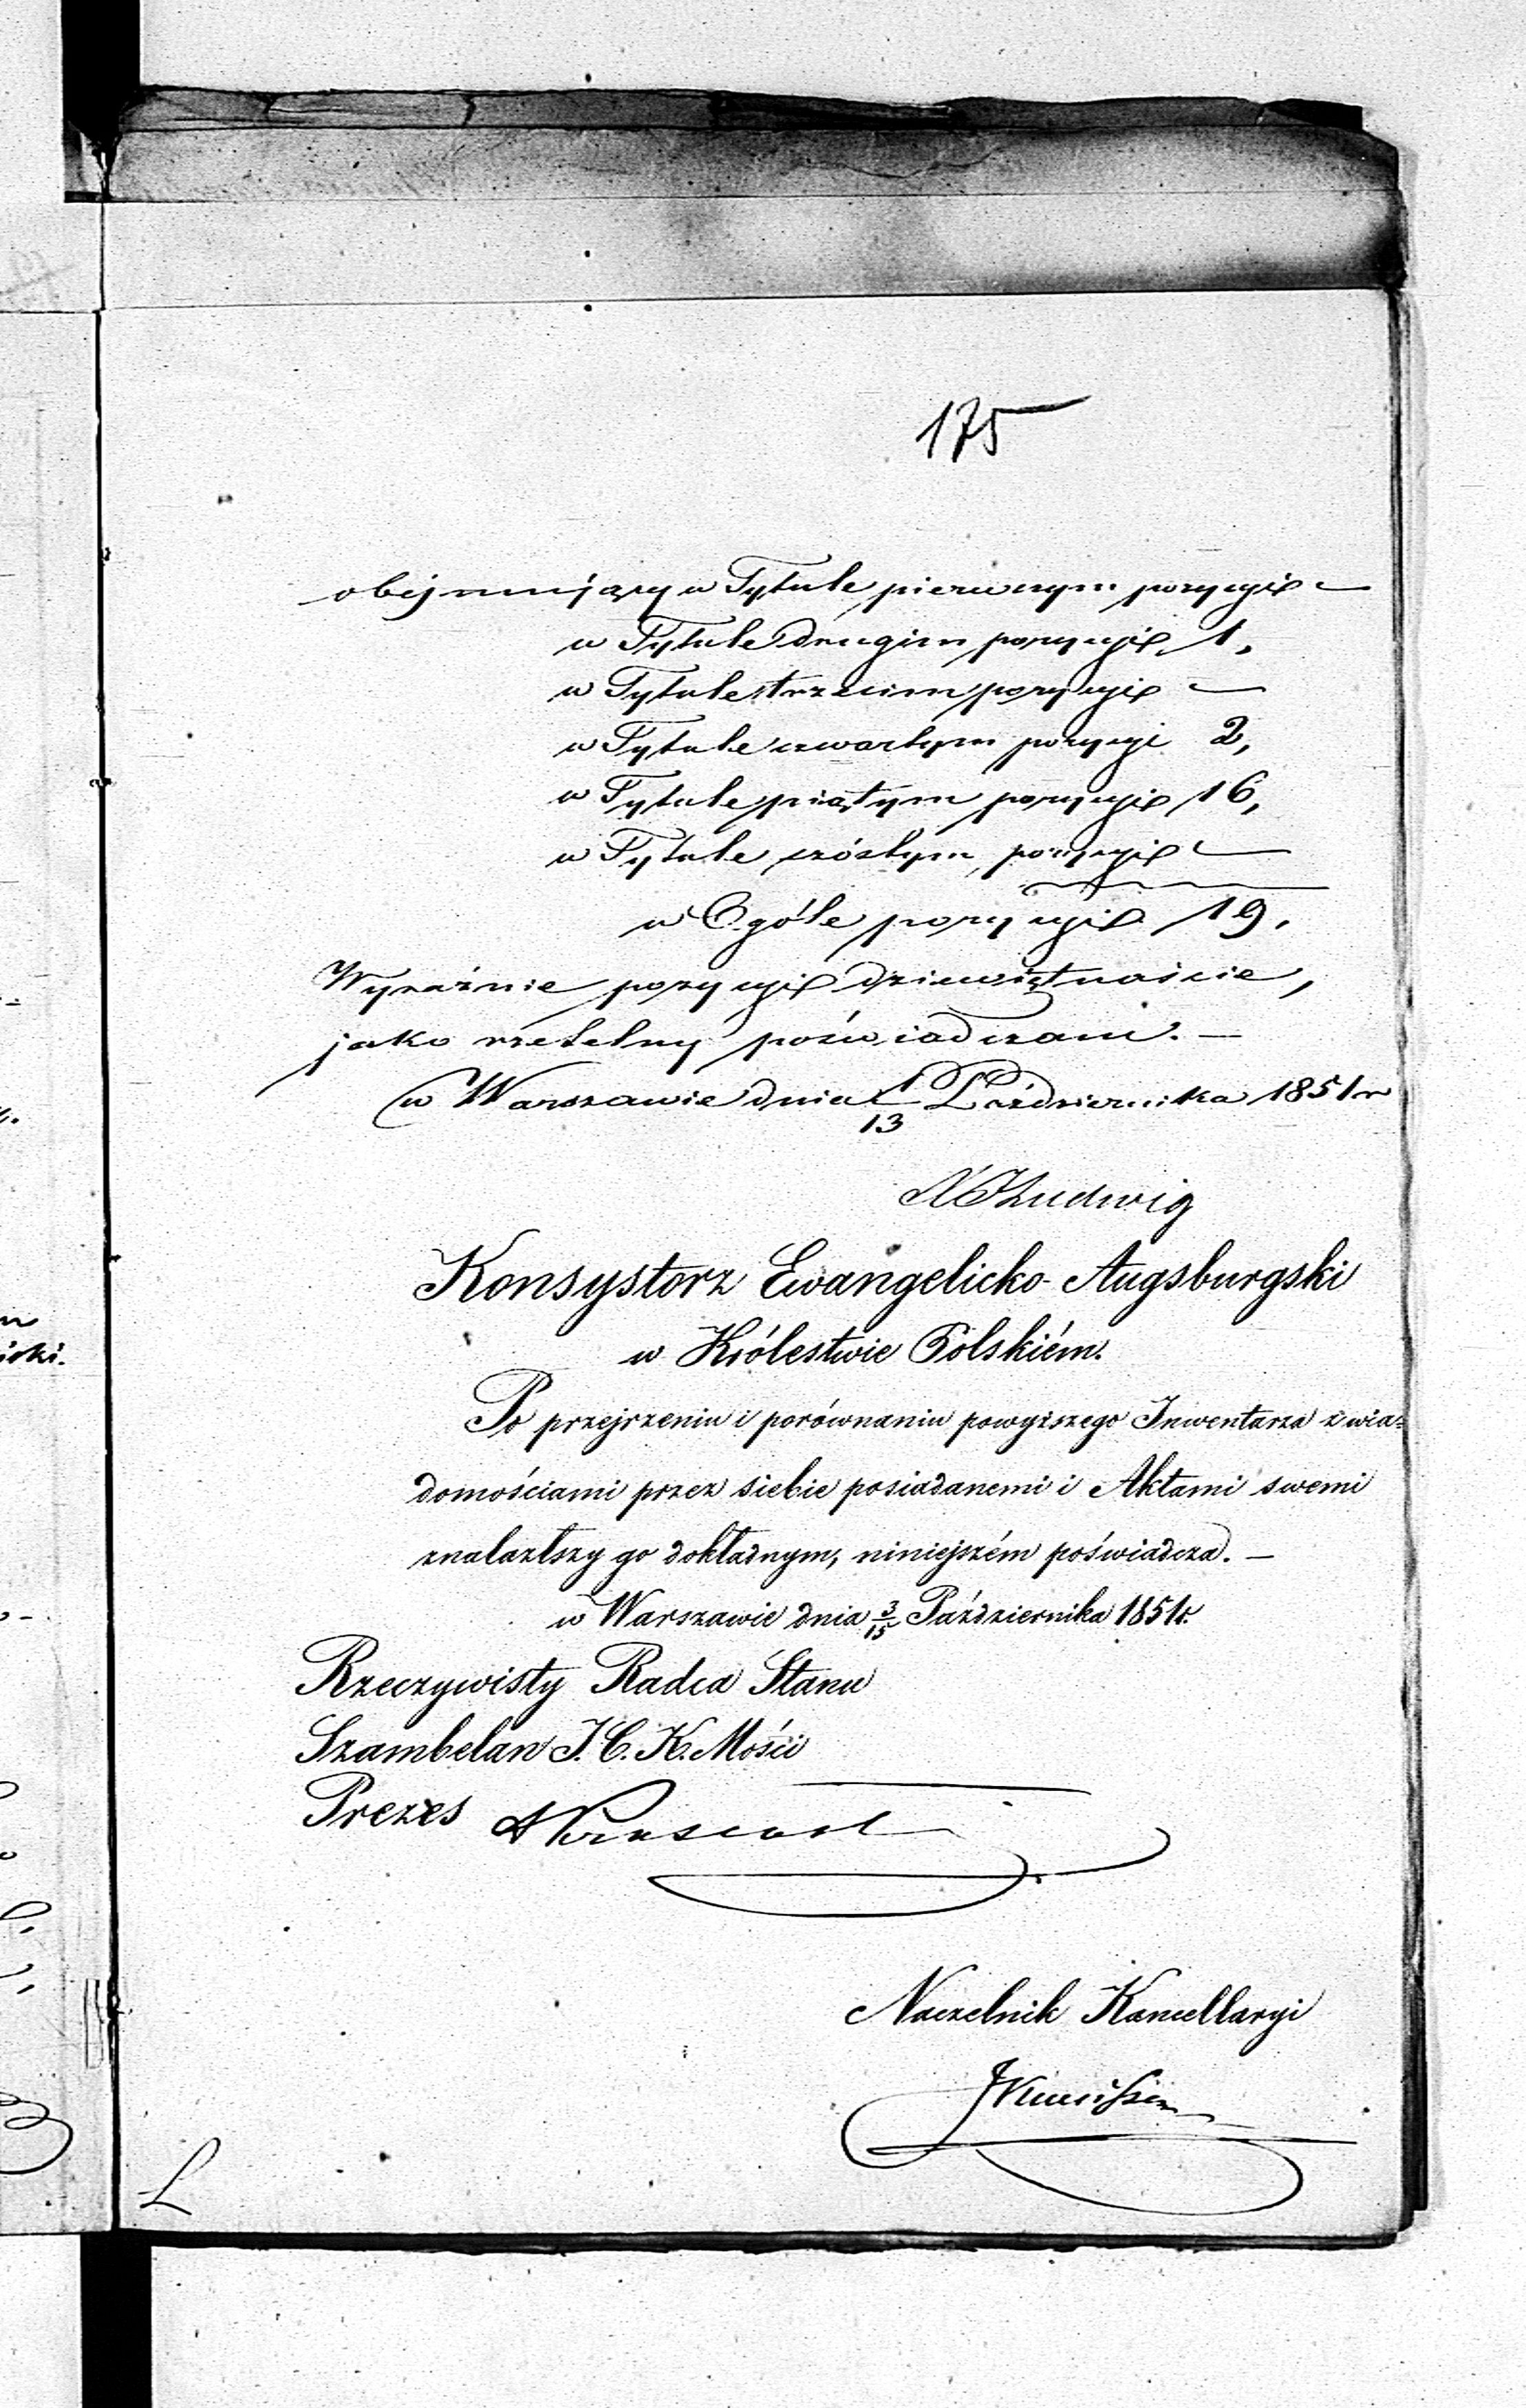 175
obejmujący w Tytule pierwszym pozycyi —
w Tytule drugim pozycyi 1,
w Tytule trzecim pozycyi —
w Tytule czwartym pozycyi 2,
w Tytule piątym pozycyi 16,
w Tytule szóstym pozycyi —
w Ogóle pozycyi 19.
Wyraźnie pozycyi dziewiętnaście,
jako rzetelny poświadczam. —
w Warszawie dnia 1/13 Października 1851 r
Ludwig
Konsystorz Ewangelicko-Augsburgski
w Królestwie Polskiém.
Po przejrzeniu i porównaniu powyższego Inwentarza z wia=
domościami przez siebie posiadanemi i Aktami swemi
znalazłszy go dokładnym, niniejszém poświadcza. —
w Warszawie dnia 3/15 Października 1851 r.
Rzeczywisty Radca Stanu
Szambelan J. C. K. Mości
Prezes
Naczelnik Kancellaryi